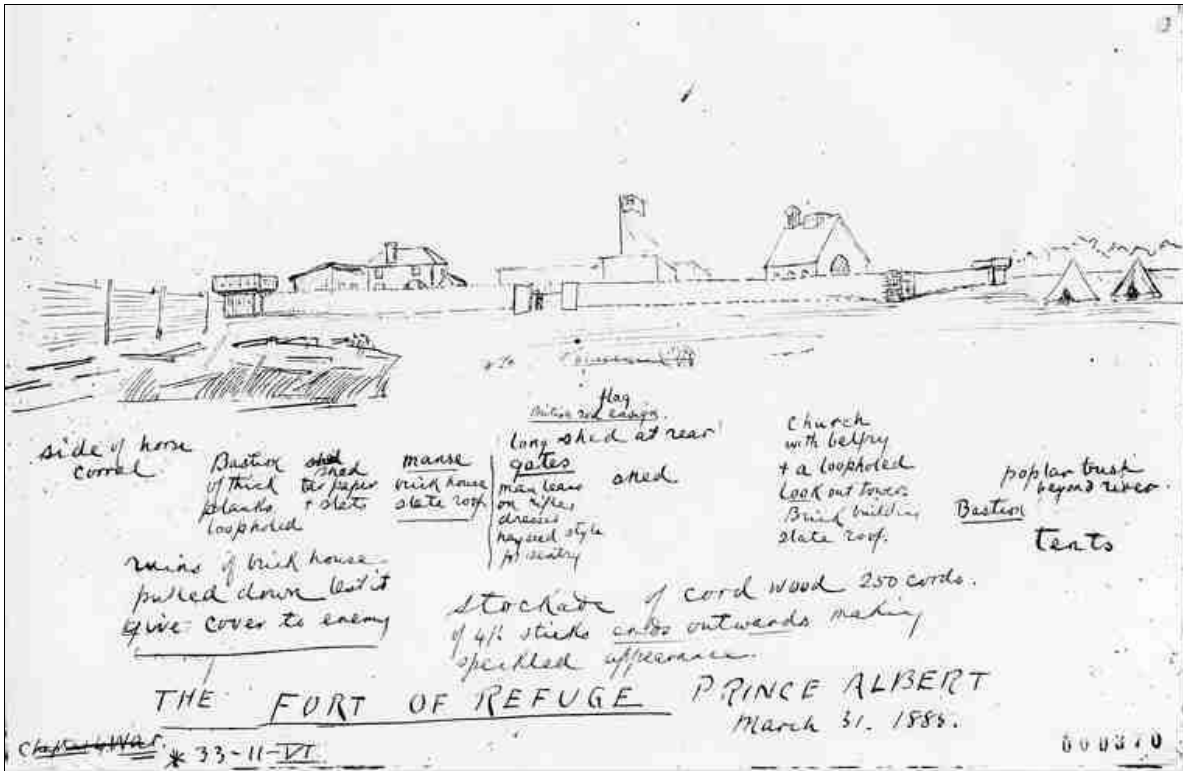 side of horse
corral
Bastion
of thick
planks
loopholed
shed
tar paper
+ slats
manse
brick house
slate roof
flag
British red ensign.
long shed at rear
gates
man leans
on rifles
dressed
hayseed style
for sentry
shed
Church
with belfry
+ a loopholed
Look out tower
Brick building
slate roof.
Bastion
poplar bush
beyond river.
tents
ruins of brick house
pulled down lest it
give cover to enemy
stockade of cord wood 250 cords.
of 4ft sticks ends outwards making
speckled appearance.
THE FORT OF REFUGE PRINCE ALBERT
March 31. 1885.
* 33-11-VI
000370